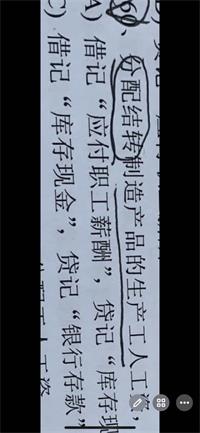 分配结转制造产品的生产工人工资,
A) 借记“应付职工薪酬”,贷记“库存现
C) 借记“库存现金”,贷记“银行存款”